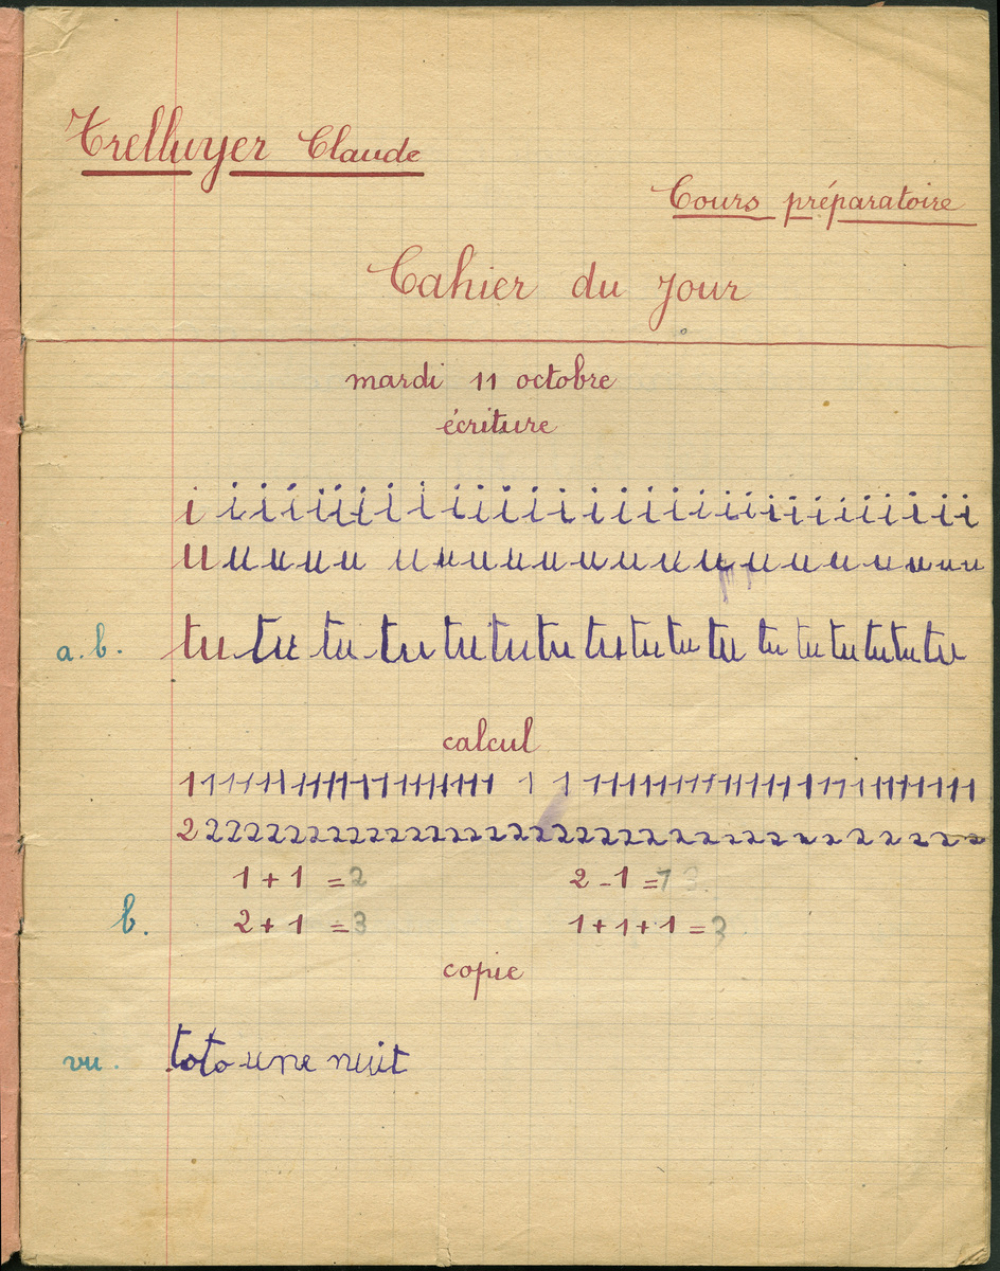 Trelluyer Claude
Cours préparatoire
Cahier du jour
mardi 11 octobre
écriture
i i i i i i i i i i i i i i i i i i i i i i i i i i i i
u u u u u u u u u u u u u u u u u u u u u u
a.b. tu tu tu tu tu tu tu tu tu tu tu tu tu tu tu tu tu
calcul
1 1 1 1 1 1 1 1 1 1 1 1 1 1 1 1 1 1 1 1 1 1 1 1 1 1 1 1 1 1 1 1 1 1 1 1 1 1 1
2 2 2 2 2 2 2 2 2 2 2 2 2 2 2 2 2 2 2 2 2 2 2 2 2 2 2 2 2 2 2 2 2 2
1 + 1 = 2 2 - 1 = 1
b. 2 + 1 = 3 1 + 1 + 1 = 3
copie
vu. toto une nuit